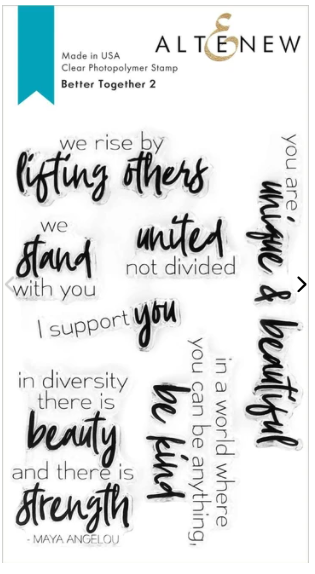 ALTENEW
Made in USA
Clear Photopolymer Stamp
Better Together 2
we rise by
lifting others
you are
unique & beautiful
we
stand
with you
united
not divided
I support you
in diversity
there is
beauty
and there is
strength
- MAYA ANGELOU
in a world where
you can be anything,
be kind